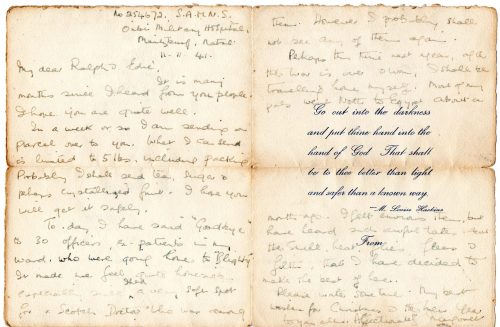 No 254672. S.A.M.N.S.
Military Hospital,
Natal.
11-11-41.
My dear Ralph & Edie.
It is many
months since I heard from you people.
I hope you are quite well.
In a week or so I am sending a
parcel over to you. What I can send
is limited to 5 lbs. including packing
Probably I shall send tea, sugar &
perhaps crystallized fruit. I hope you
will get it safely.
To-day, I have said "Goodbye"
to 30 officers, ex-patients in my
ward, who were going home to "Blighty"
It made me feel quite homesick
especially
had
a soft spot
for a Scotch Doctor who was among
them. However I probably shall
not see any of them again.
Perhaps this time next year, after
this war is over & won, I shall be
travelling home myself. Most of my
pals went North to Egypt about a
Go out into the darkness
and put thine hand into the
hand of God That shall
be to thee better than light
and safer than a known way.
—M. Louise Haskins
month ago. I felt envious then, but
have heard such awful tales about
the smell, heat, flies &
filth, that I have decided to
From
make the best of here.
Please write some time. My best
wishes for Christmas & the New Year
to you all.